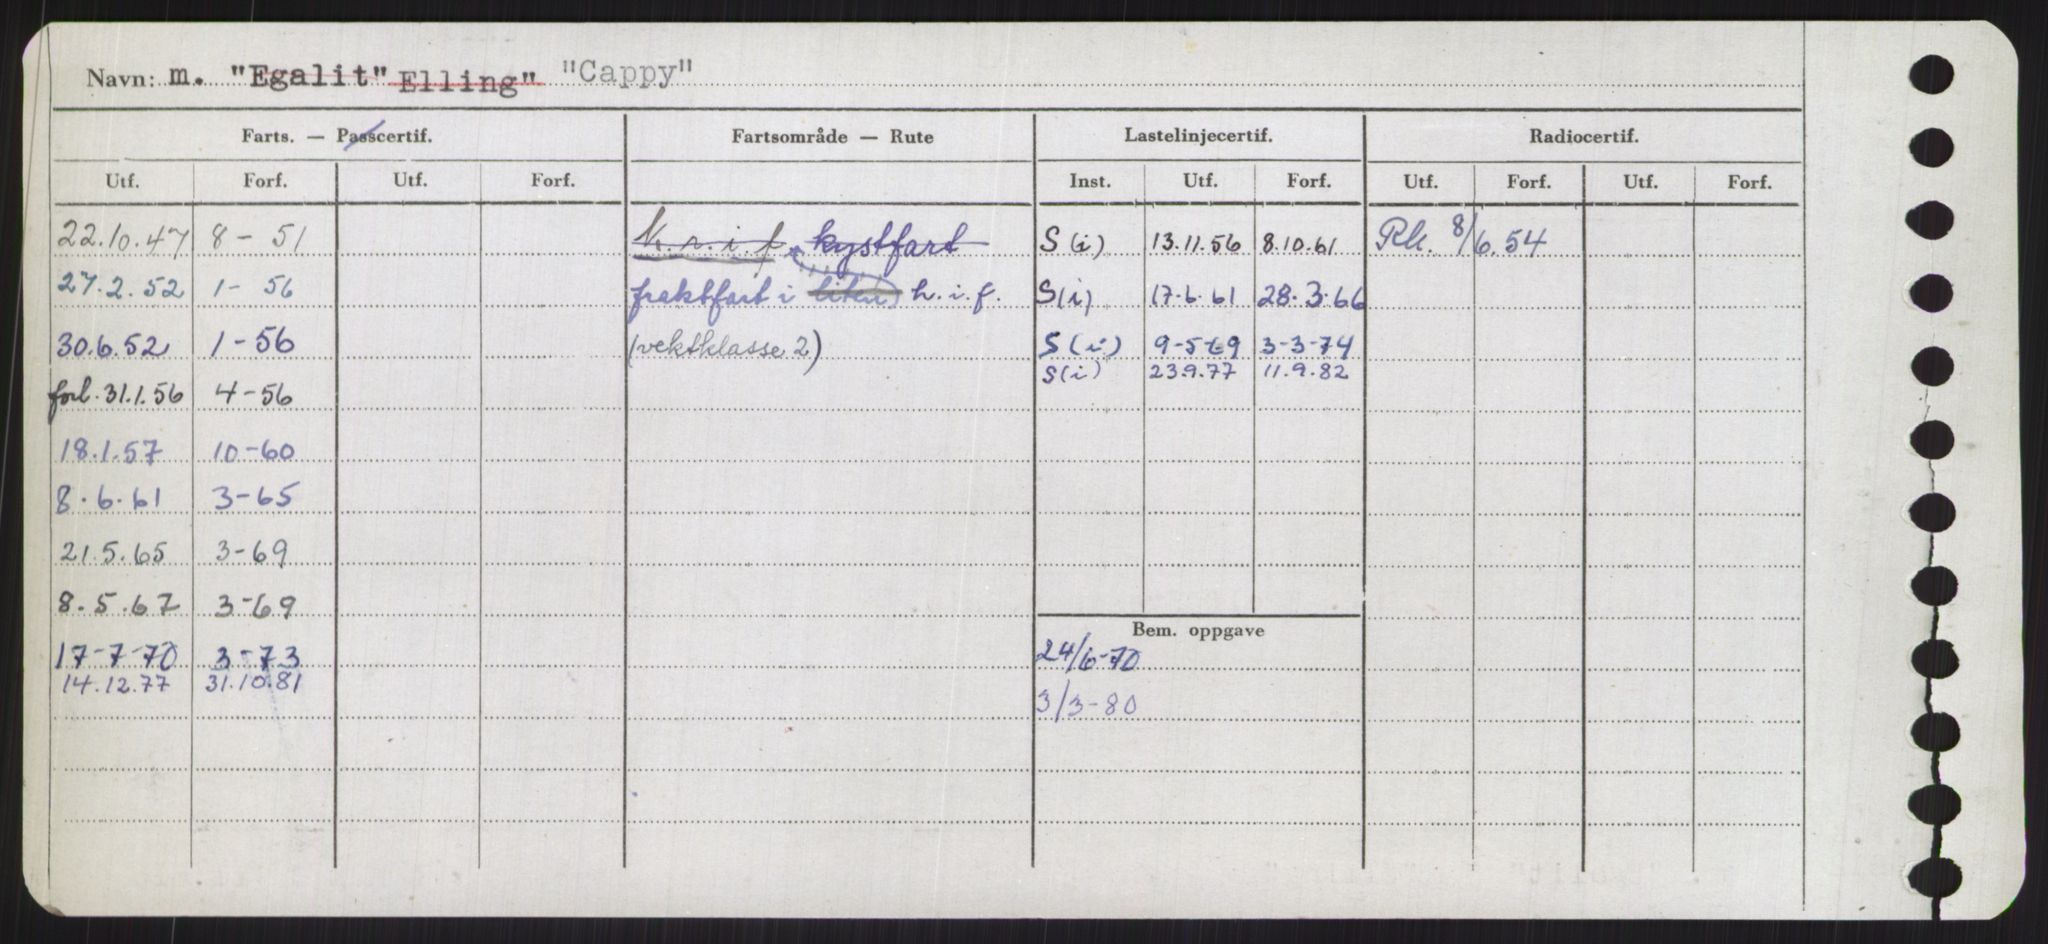 Navn: m. "Egalit" Elling" "Cappy"
Farts. — Passcertif. Fartsområde — Rute Lastelinjecertif. Radiocertif.
Utf. Forf. Utf. Forf. Inst. Utf. Forf. Utf. Forf. Utf. Forf.
22.10.47 8 - 51 k.r.i.f. kystfart S(i) 13.11.56 8.10.61 Rk. 8/6.54
27.2.52 1 - 56 fraktfart i liten h.i.f. S(i) 17.6.61 28.3.66
30.6.52 1-56 (vektklasse 2) S(i) 9-5-69 3-3-74
S(i) 23.9.77 11.9.82
forl. 31.1.56 4-56
18.1.57 10-60
8.6.61 3-65
21.5.65 3-69
8.5.67 3-69
Bem. oppgave
17-7-70 3-73 24/6-70
14.12.77 31.10.81
3/3-80